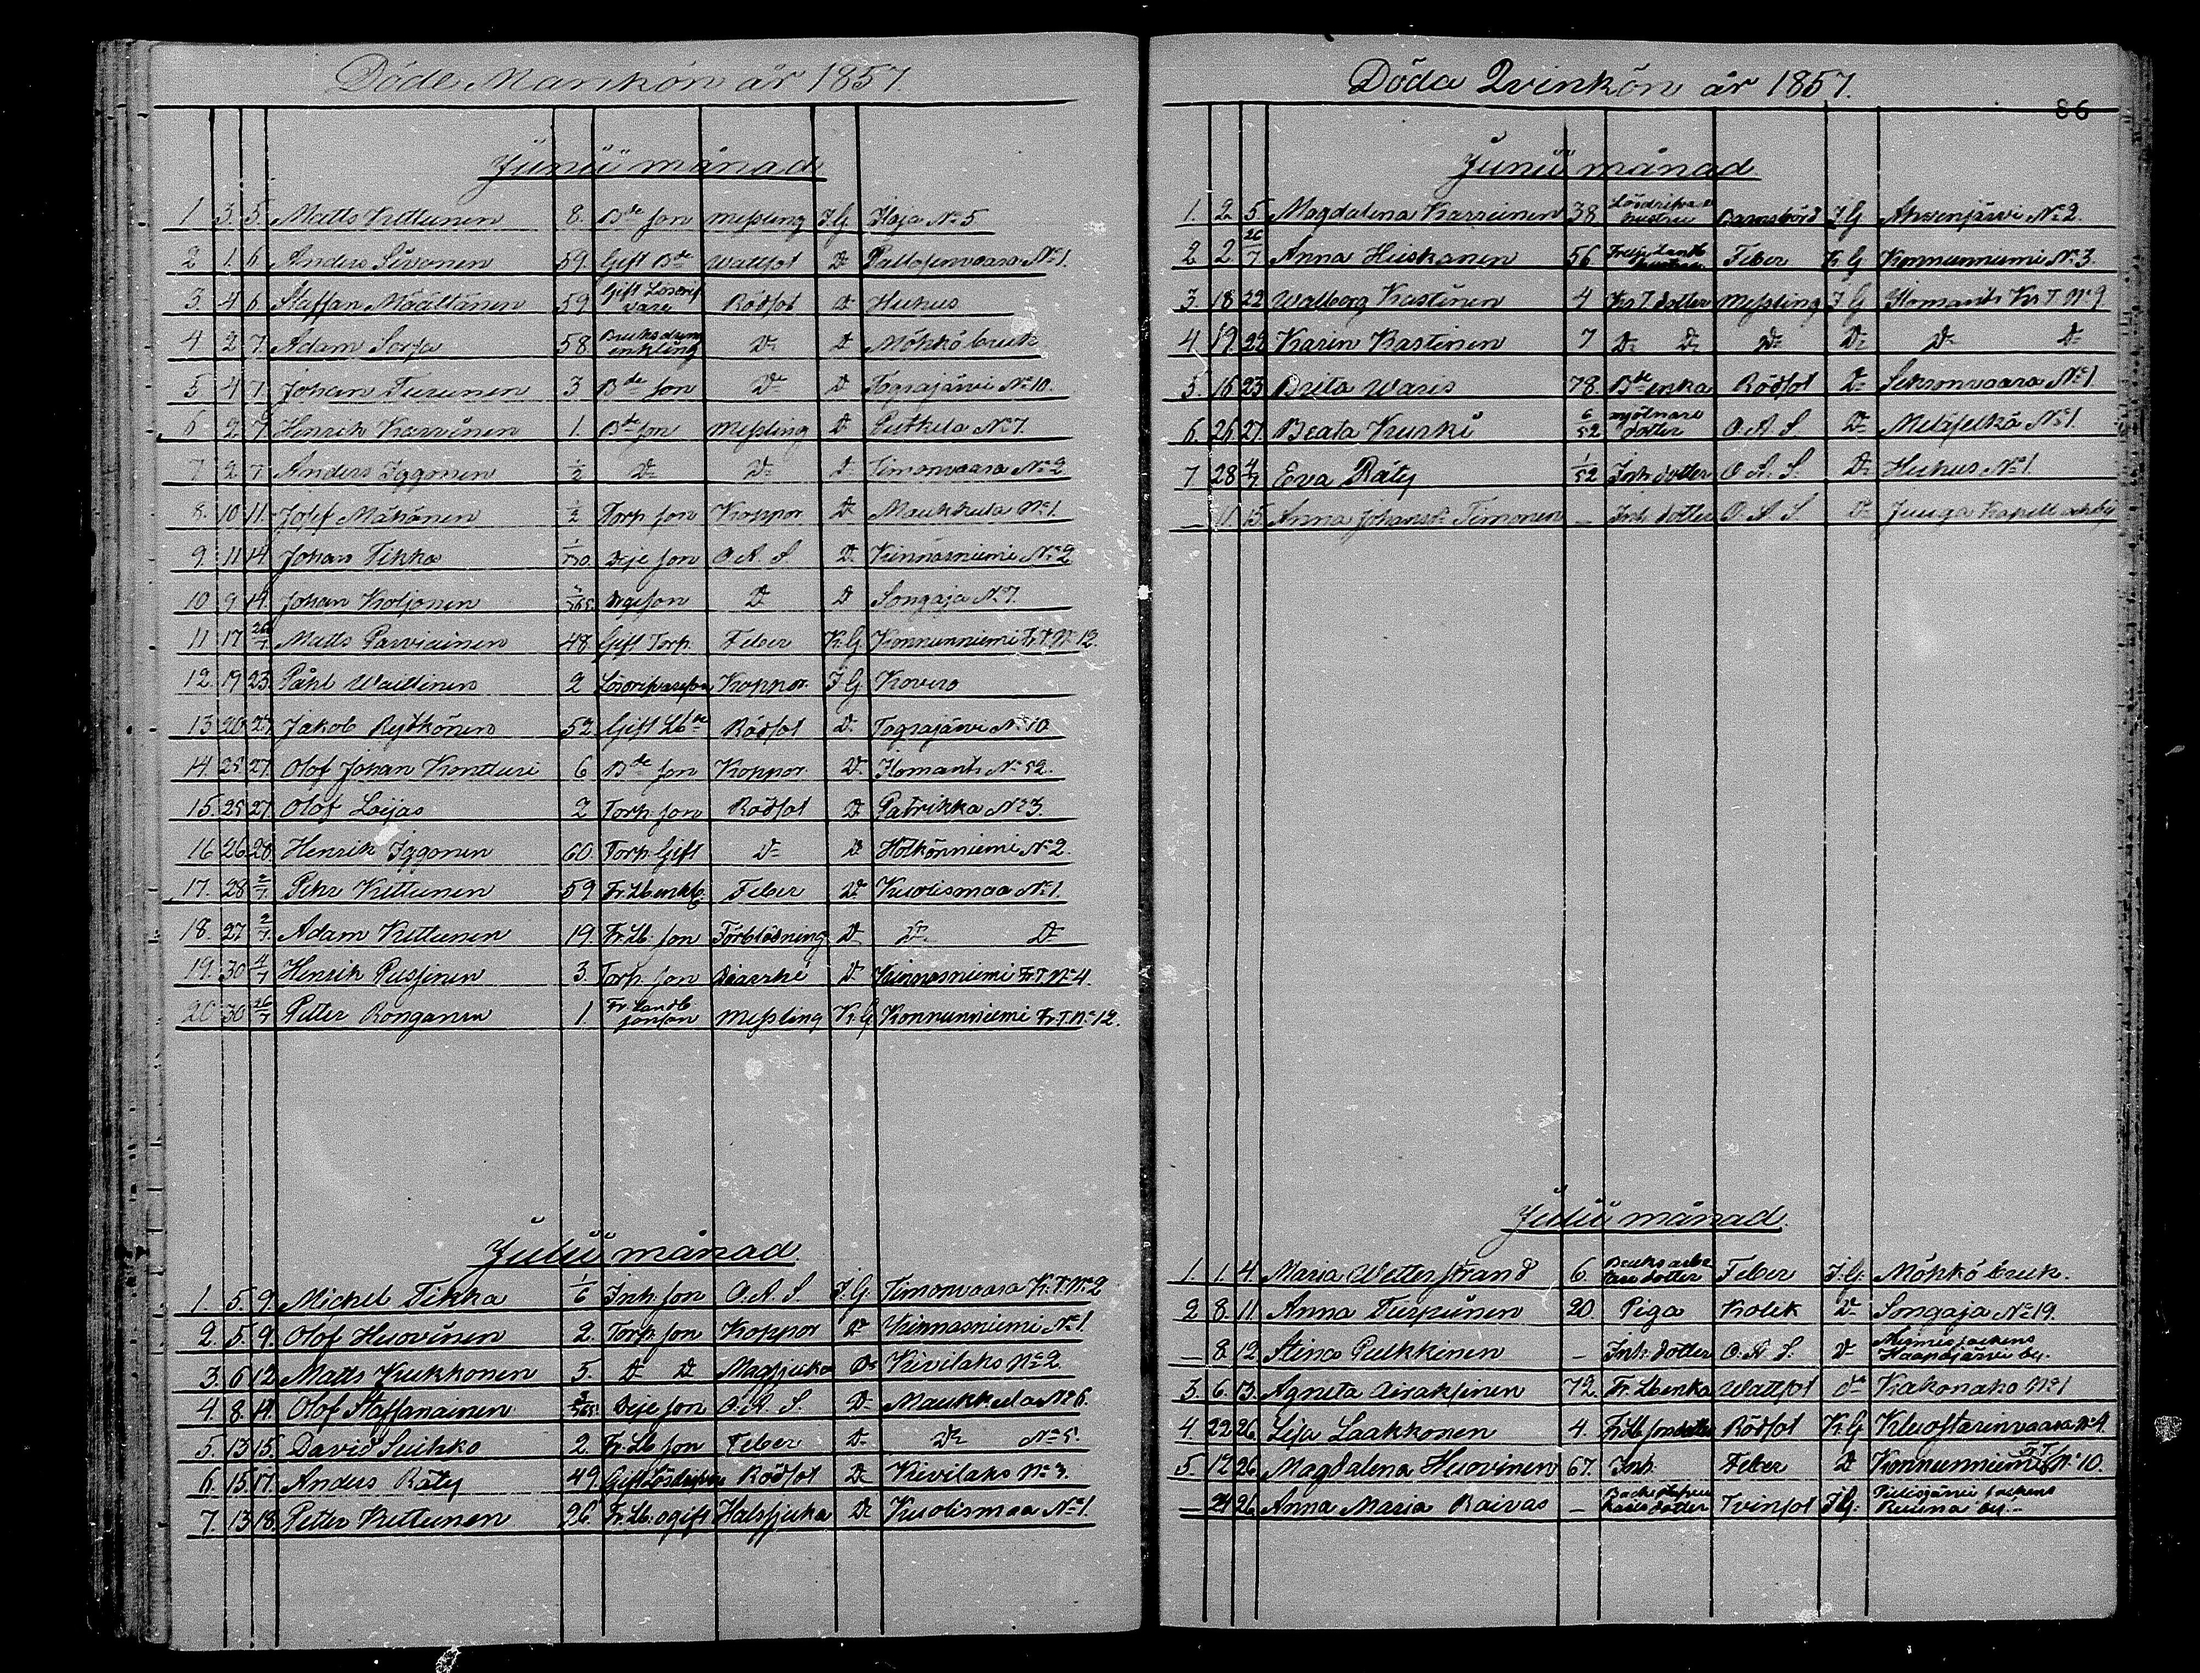 Döde Mankön år 1857.
Junii månad
1 3. 5. Matts Kuttunen 8. Bde son Messling I.G Ilaja No 5
2 1. 6. Anders Sivonen 59. Gift Bde Wattsot Do Pallosenvaara No 1.
3. 4 6 Staffan Määttänen 59. Gift Lösdrifvare Rödsot Do Hukus
4 2 7. Adam Sorsa 58. Bruksdräng enkling Do Do Möhkö bruk
5 4 7. Johan Turunen 3 Bde son Do Do Tograjärvi No 10.
6 2. 7. Henrik Karvinen 1. Bde son Messling Do Putkela No 7.
7 2 7 Anders Iggonen 1/2 Do Do Do Timonvaara No 2
8. 10 11. Josef Mähönen 1/2 Torp. son Koppor Do Maukkula No 1.
9 11 14 Johan Tikka Deje son O.A.S. Do Kinnasniemi No 2
10 9 14. Johan Koljonen Deje son Do Do Songaja No 7.
11 17 26/7 Matts Parviainen 48 Gift Torp. Feber K.G Konnunniemi Fr.T. No 12.
12. 19 23. Påhl Wallinen 2 Lösdrifvareson Koppor. I G Kovero
13 20 27 Jakob Rytkönen 52 Gift Lbde Rödsot Do Tograjärvi No 10
14. 25 27. Olof Johan Kontturi 6 Bde son Koppor. Do Ilomants No 52.
15. 25 27. Olof Leijas 2 Torp. son Rödsot Do Patrikka No 3.
16 26 28 Henrik Iggonen 60. Torp. Gift Do Do Hölkönniemi No 2.
17. 28 2/7 Pehr Kuttunen 59 Fr. Lb enkl. Feber Do Kuolismaa No 1.
18. 27 2/7 Adam Kuttunen 19. Fr. Lb. son Förblödning Do Do Do
19. 30 4/7 Henrik Pussinen 3. Torp. son Diarrhé Do Kinnasniemi Fr.T. No 4.
20 30 26/7 Petter Rongainen 1. Fr Landb. sonson Messling K.G Konnunniemi Fr.T. No 12.
Julii månad
1. 5. 9. Michel Tikka 1/6 Inh. son O.A.S. I.G. Timonvaara Kr.T. No 2
2. 5 9. Olof Huovinen 2. Torp. son Koppor Do Kinnasniemi No 1.
3. 6 12 Matts Kukkonen 5. Do Do Magsjuka Do Kivilaks No 2.
4. 8 14. Olof Staffanainen Deje son O.A.S. Do Maukkula No 6.
5. 13 15. David Suihko 2. Fr. Lb son Feber Do Do No 5.
6. 15 17. Anders Räty 49. Gift Rödsot Do Kivilaks No 3.
7. 13 18. Petter Kuttunen 26 Fr. Lb. ogift Halssjuka Do Kuolismaa No 1.
Döda Qvinkön år 1857.
86
Junii månad
1. 2 5 Magdalena Karreinen 38 Lösdrifvare hustru Barnsbörd I G Ahvenjärvi No 2.
2 2 26/7 Anna Huskonen 56 Landb. hustru Feber K G Konnunniemi No 3
3 18 22 Walborg Kastinen 4 Kr.T. dotter Messling I G Ilomants Kr T. No 9
4 19. 22 Karin Kastinen 7 Do Do Do Do Do Do
5. 16 23 Brita Waris 78. Bde enka Rödsot Do Sikrenvaara No 1
6. 26 27. Beata Kurki 6/52 mjölnare dotter O.A.S. Do Meläselkä No 1.
7 28 4/7 Eva Räty 1/52 Inh. dotter O.A.S. Do Hukus No 1.
— 11. 15 Anna Johansdr Timonen — Inh. dotter O.A.S. Do Juuga Kapell
Julii månad
1. 1. 4. Maria Wetterstrand 6. Bruks arbetare dotter Feber I.G. Möhkö bruk.
2 8. 11. Anna Turpeinen 20. Piga Kolik Do Songaja No 19.
— 8 12 Stina Pulkkinen — Inh. dotter O.A.S. Do Kimis sockens Haapajärvi by.
3. 6. 13. Agneta Airaksinen 72. Fr. Lb enka Wattsot Do Kakonaho No 1
4. 22 26. Lisa Laakkonen 4. Fr Lb sondotter Rödsot K.G Kluostarinvaara No 4.
5. 12 26 Magdalena Huovinen 67. Inh. Feber Do Konnunniemi Fr.T. No 10.
— 24 26 Anna Maria Raivas — dotter Tvinsot I.G. Pielisjärvi sockens by.